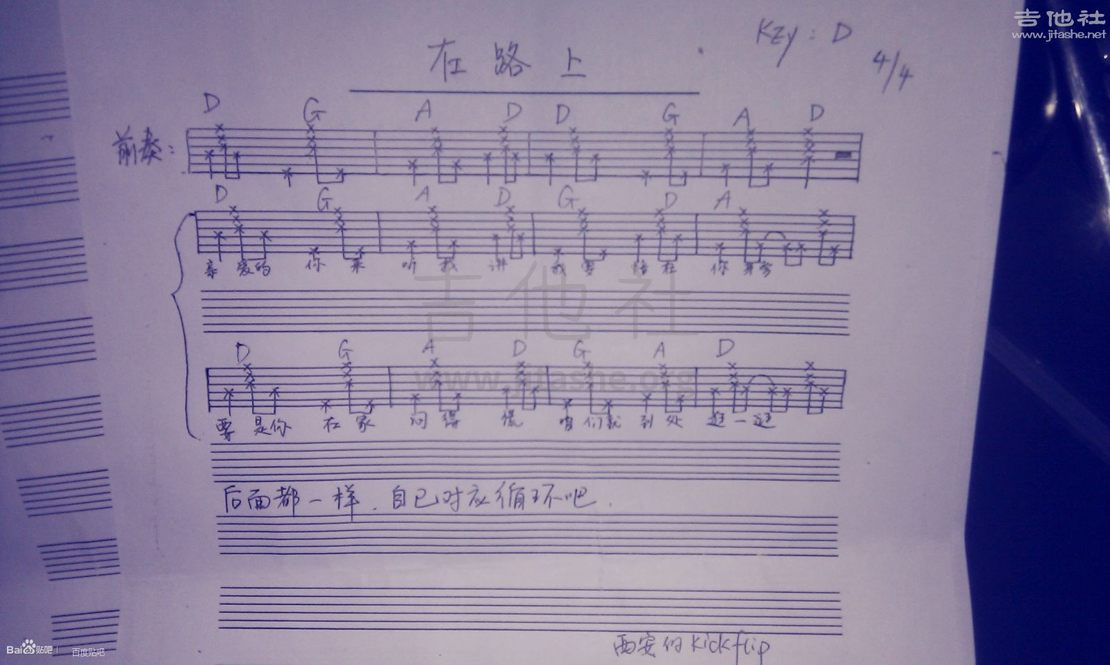 吉他社
www.jitashe.net
Key: D
4/4
在路上
D G A D D G A D
前奏:
D G A D G D A
亲爱的 你来 听我讲 我要 你
吉他社
www.jitashe.org
D G A D G A D
要是你 在家 闷得慌 咱们就到处逛一逛
后面都一样.自己对应循环吧.
西安的kickflip
Bai 贴吧
百度贴吧